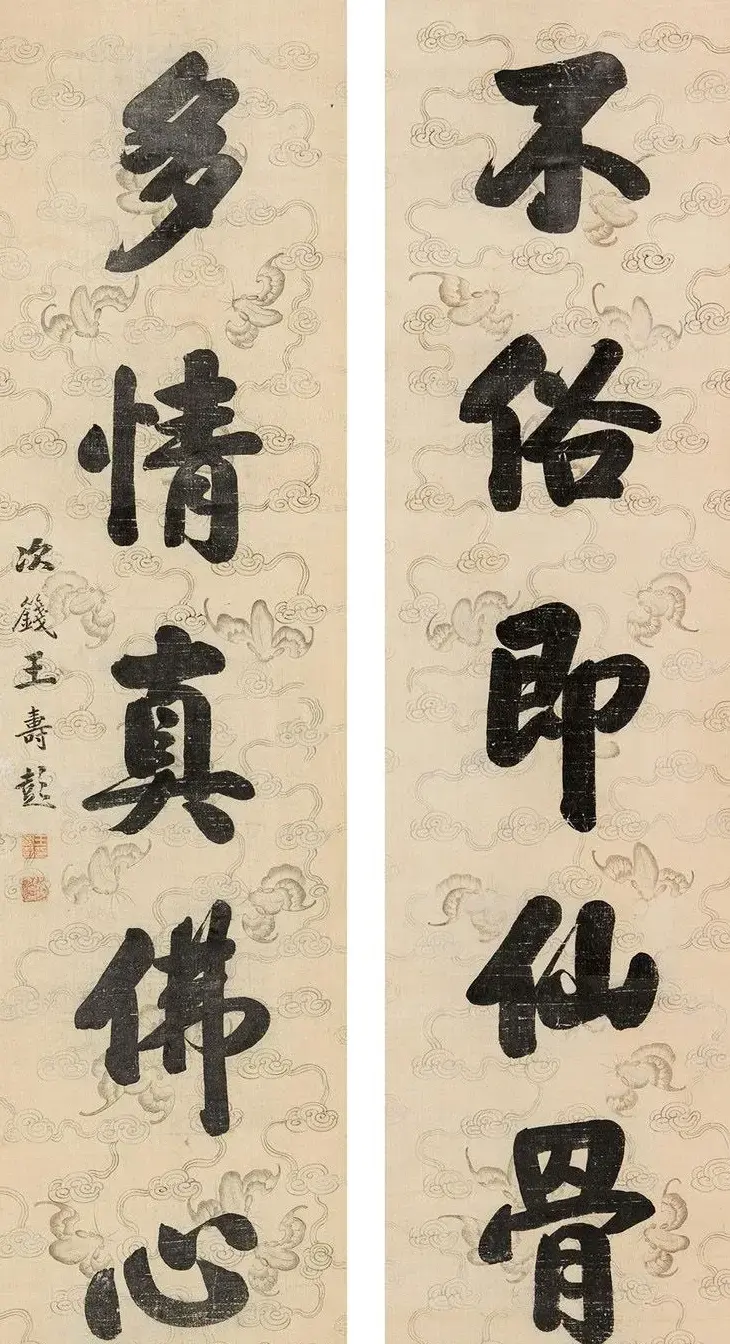 不俗即仙骨
多情真佛心
次籛王壽彭